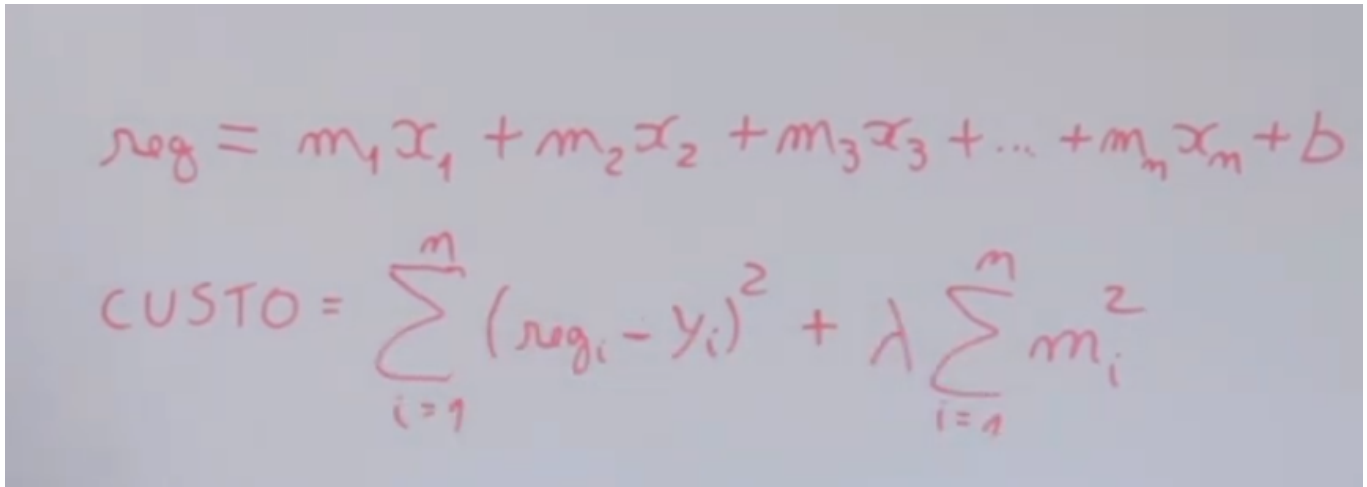 reg = m₁x₁ + m₂x₂ + m₃x₃ + ... + mₙxₙ + b
CUSTO = ∑ᵢ₌₁ⁿ (regᵢ - yᵢ)² + λ ∑ᵢ₌₁ⁿ mᵢ²